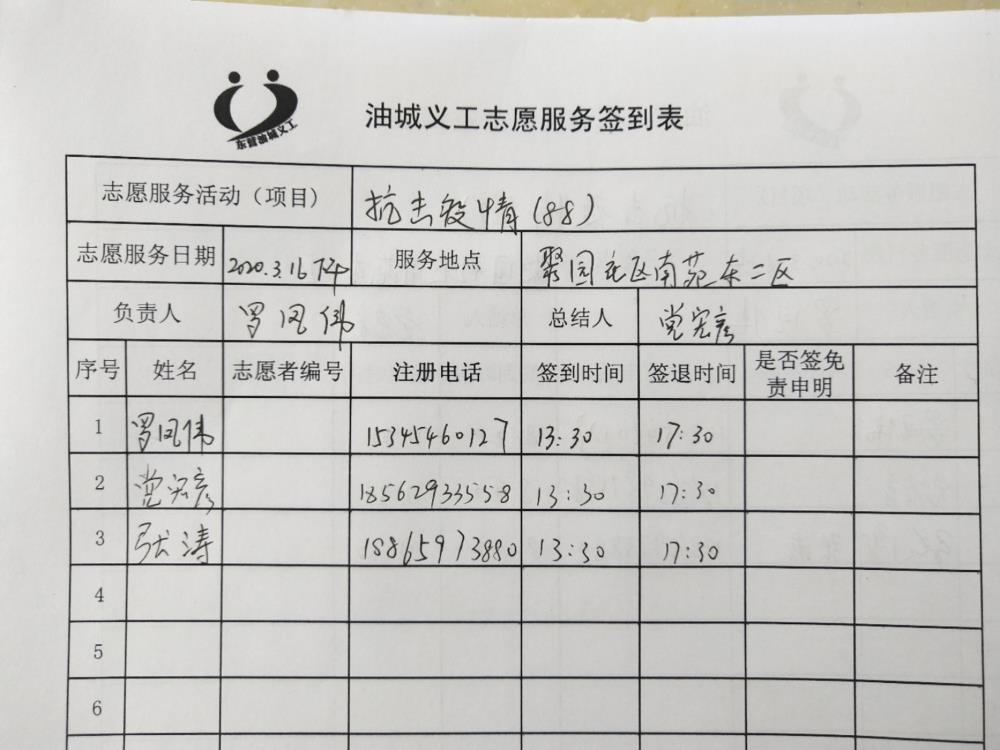 东营油城义工
油城义工志愿服务签到表
志愿服务活动（项目） 抗击疫情(88)
志愿服务日期 2020.3.16下午 服务地点 聚园宅区南苑东二区
负责人 罗凤伟 总结人 党宏彦
序号 姓名 志愿者编号 注册电话 签到时间 签退时间 是否签免责申明 备注
1 罗凤伟 15345460127 13:30 17:30
2 党宏彦 18562933558 13:30 17:30
3 张涛 18865973880 13:30 17:30
4
5
6